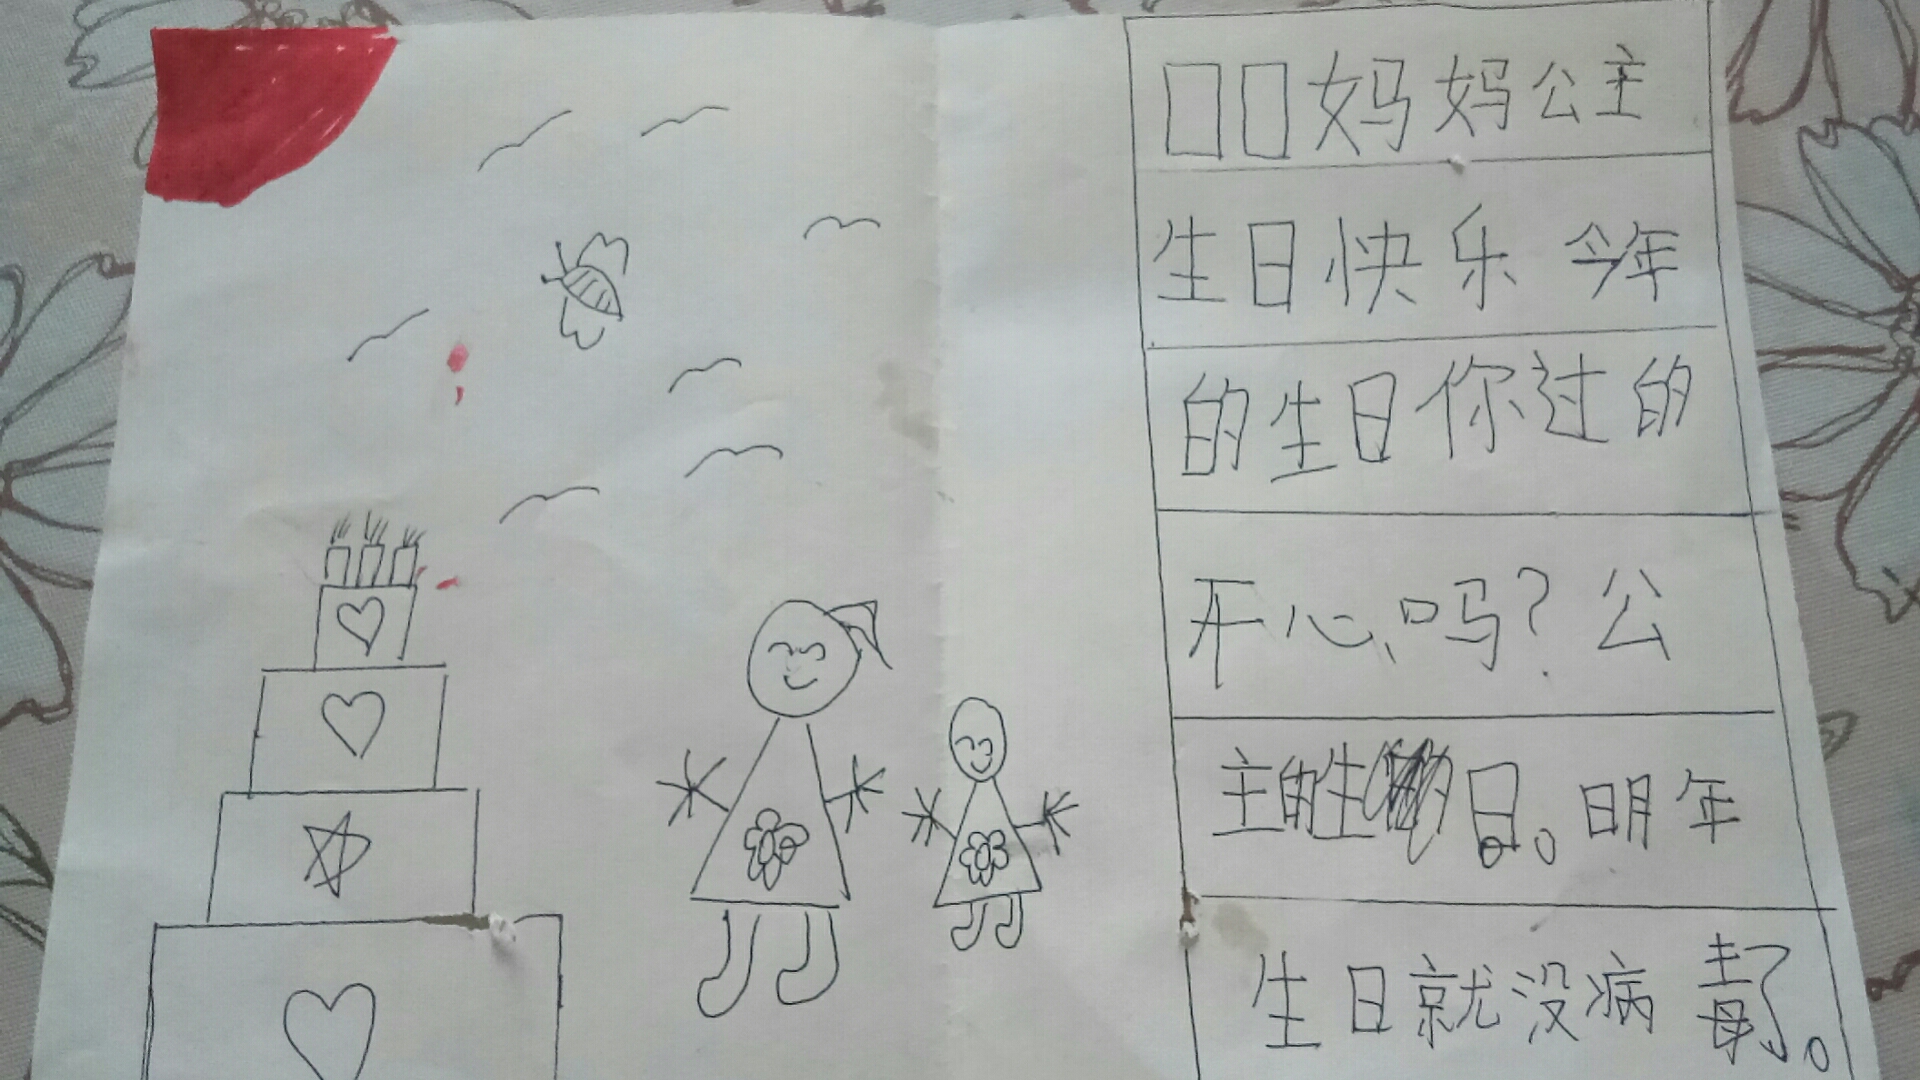 □□妈妈公主
生日快乐今年
的生日你过的
开心吗？公
主的生日。明年
生日就没病毒了。